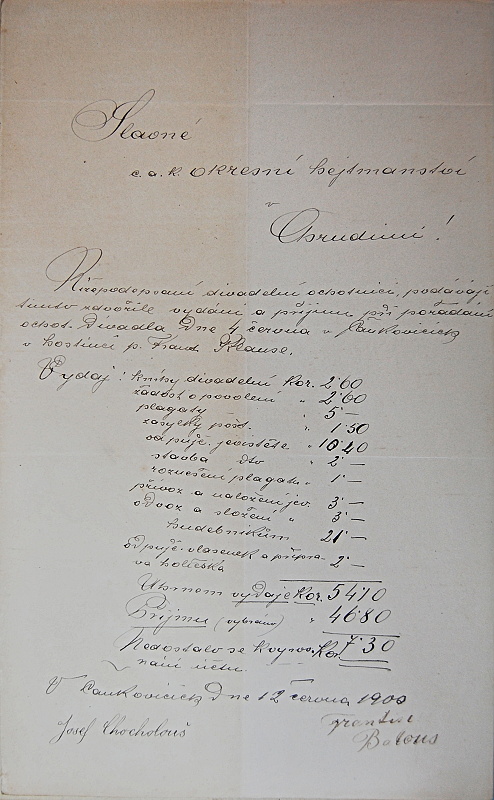 Slavné
c. a k. okresní hejtmanství
v
Chrudimi!
Nížepodepsaní divadelní ochotníci, podávají
tímto zdvořile vydání a příjem při pořádání
ochot. divadla dne 4 června v Čankovicích
v hostinci p. Frant. Klause.
Výdaj: knihy divadelní Kor. 2·60
žádost o povolení " 2·60
plagáty " 5 —
zásylky pošt. " 1·50
od půjč. jeviště " 10·40
stavba dto " 2 —
roznešení plagátů " 1 —
přívoz a naložení jev. 3 —
odvoz a složení " 3 —
hudebníkům 21 —
od půjč. vlasenek a přípra- 2 —
va holiče
Úhrnem výdaje Kor. 54 10
Příjmu (vybráno) " 46·80
Nedostalo se k vyrov. Kor. 7·30
nání účtu.
V Čankovicích dne 12 června 1900
Josef Chocholouš